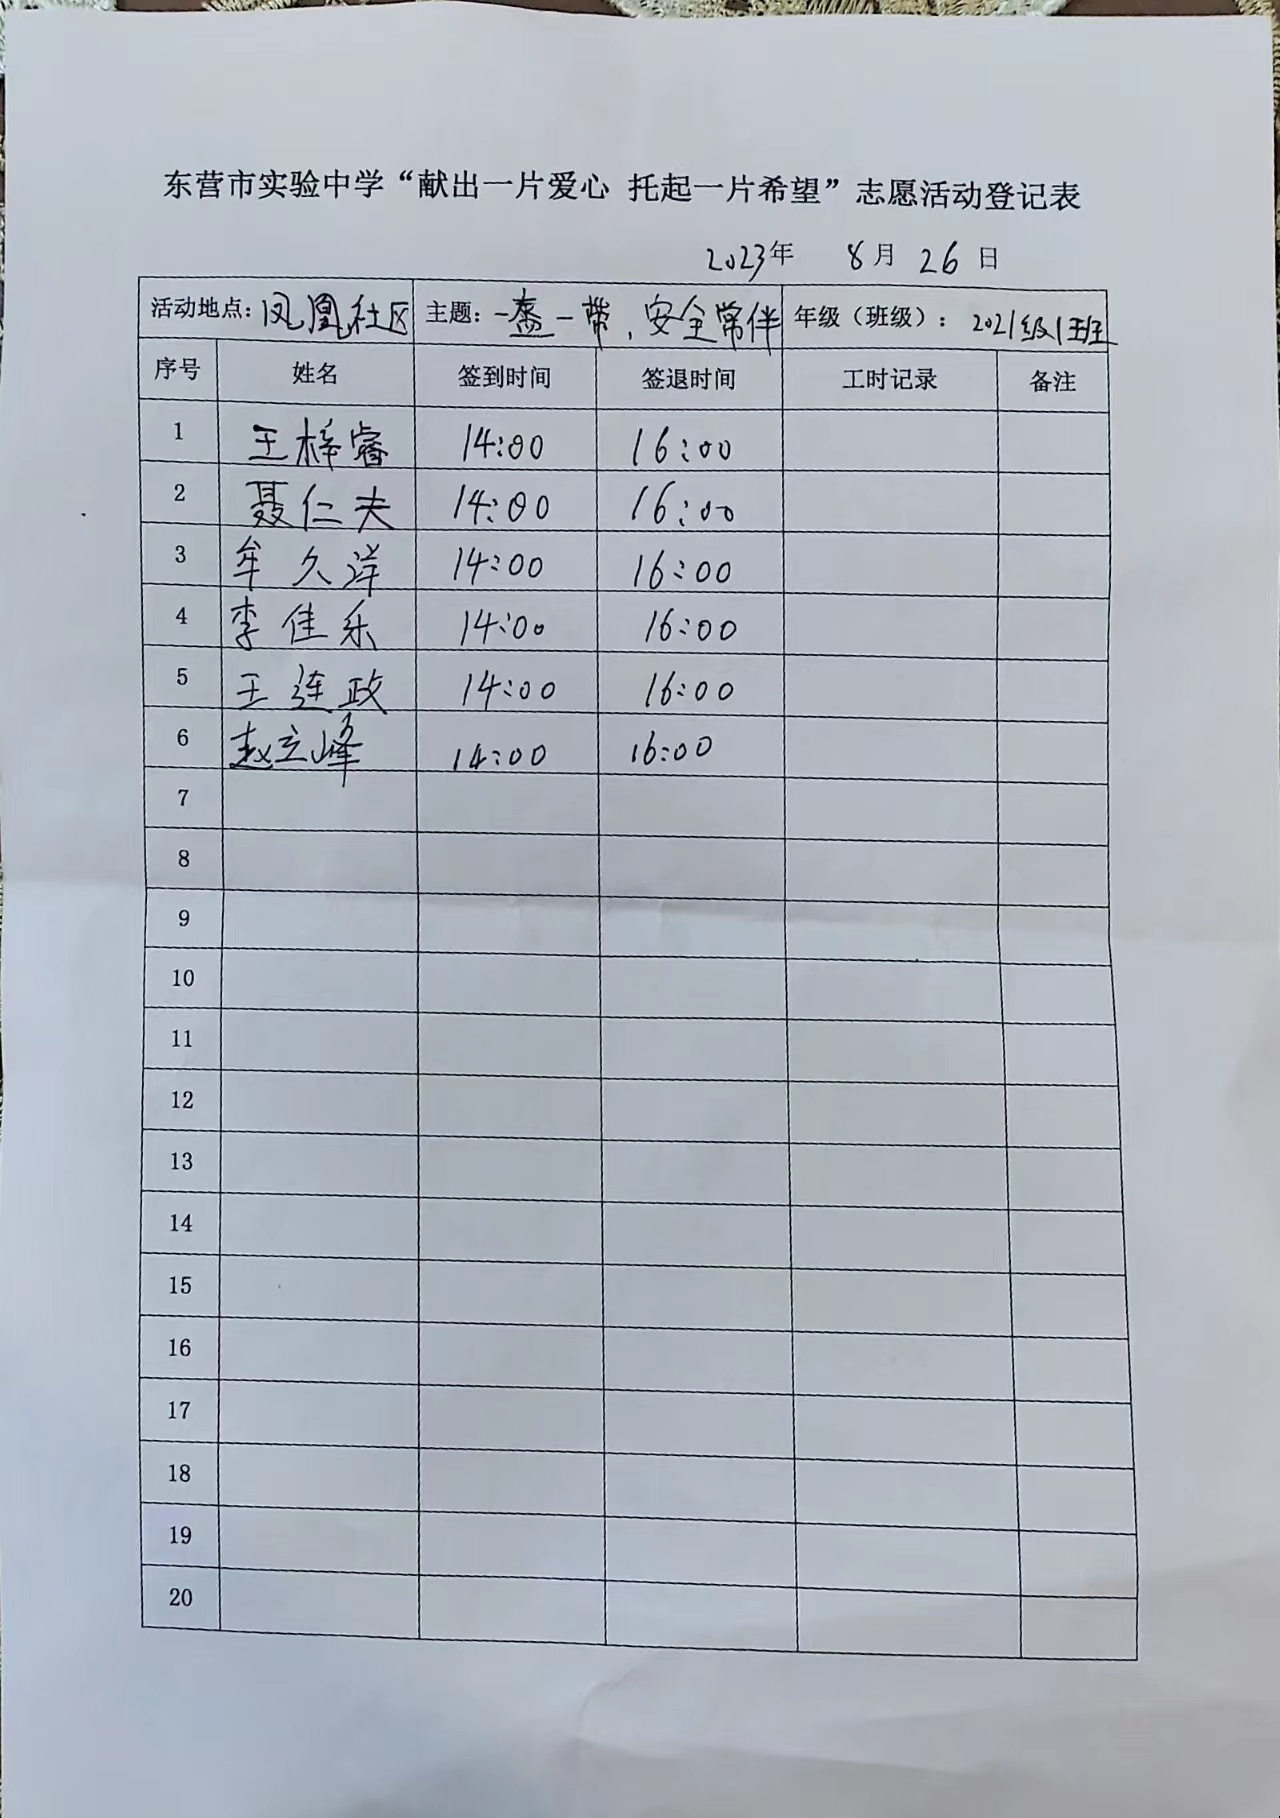 东营市实验中学“献出一片爱心 托起一片希望”志愿活动登记表
2023年 8月 26日
活动地点：凤凰社区 主题：一盔一带，安全常伴 年级（班级）：2021级1班
序号 姓名 签到时间 签退时间 工时记录 备注
1 王梓睿 14:00 16:00
2 聂仁夫 14:00 16:00
3 牟久洋 14:00 16:00
4 李佳乐 14:00 16:00
5 王连政 14:00 16:00
6 赵立峰 14:00 16:00
7
8
9
10
11
12
13
14
15
16
17
18
19
20